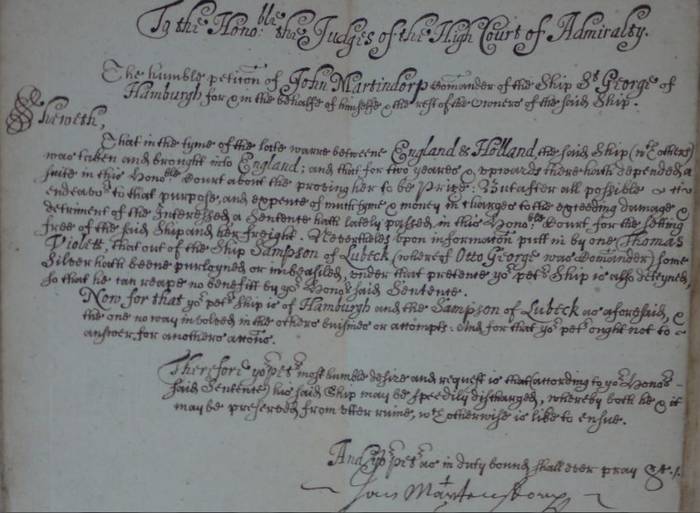 To the Hono:ble the Judges of the High Court of Admiralty.
The humble petic͠on of John Martindorp Com͠ander of the Ship St George of
Hamburgh, for & in the behalfe of himselfe & the rest of the Owners of the said Ship.
Sheweth,
That in the tyme of the late warre betweene England & Holland, the said Ship (wth others)
was taken and brought into England; and that for two yeares & upwards there hath depended a
suite in this Hono:ble Court about the proving her to be Prize: But after all possible
endeavor to that purpose, and expence of much tyme & money in charges to the exceeding damage &
detriment of the Interessed, a Sentence hath lately passed in this Hono:ble Court, for the setting
free of the said Ship and her freight. Neverthles upon informac͠on putt in by one Thomas
Violett, that out of the Ship Sampson of Lubeck (whereof Otto George was Com͠ander) some
Silver hath beene purloyned or imbeasiled, under that pretence yor petrs Ship is also deteyned,
so that he can reape no benefitt by yor Honors said Sentence.
Now for that yor petrs ship is of Hamburgh and the Sampson of Lubeck as aforesaid, &
the one no way involved in the others busines or attempts. And for that yor petr ought not to
answer for anothers acc͠ons.
Therefore yor petrs most humble desire and request is that (according to yor Honors
said Sentence) his said Ship may be speedily discharged, whereby both he & it
may be preserved from utter ruine, wch otherwise is like to ensue.
And yor petr as in duty bound shall ever pray &c.